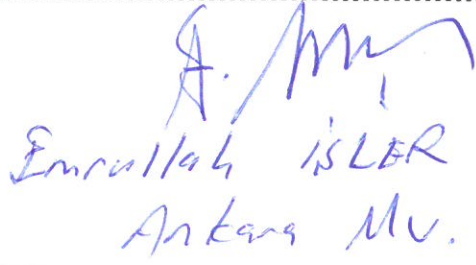 Emrullah İŞLER
Ankara Mv.